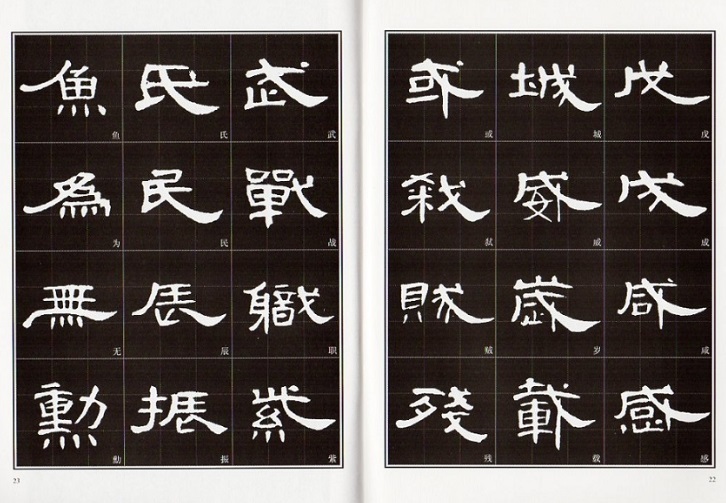 戊 戊
成 成
咸 咸
感 感
城 城
威 威
歲 岁
載 载
或 或
弑 弑
賊 贼
殘 残
22
武 武
戰 战
職 职
紫 紫
氏 氏
民 民
辰 辰
振 振
魚 鱼
為 为
無 无
勳 勋
23